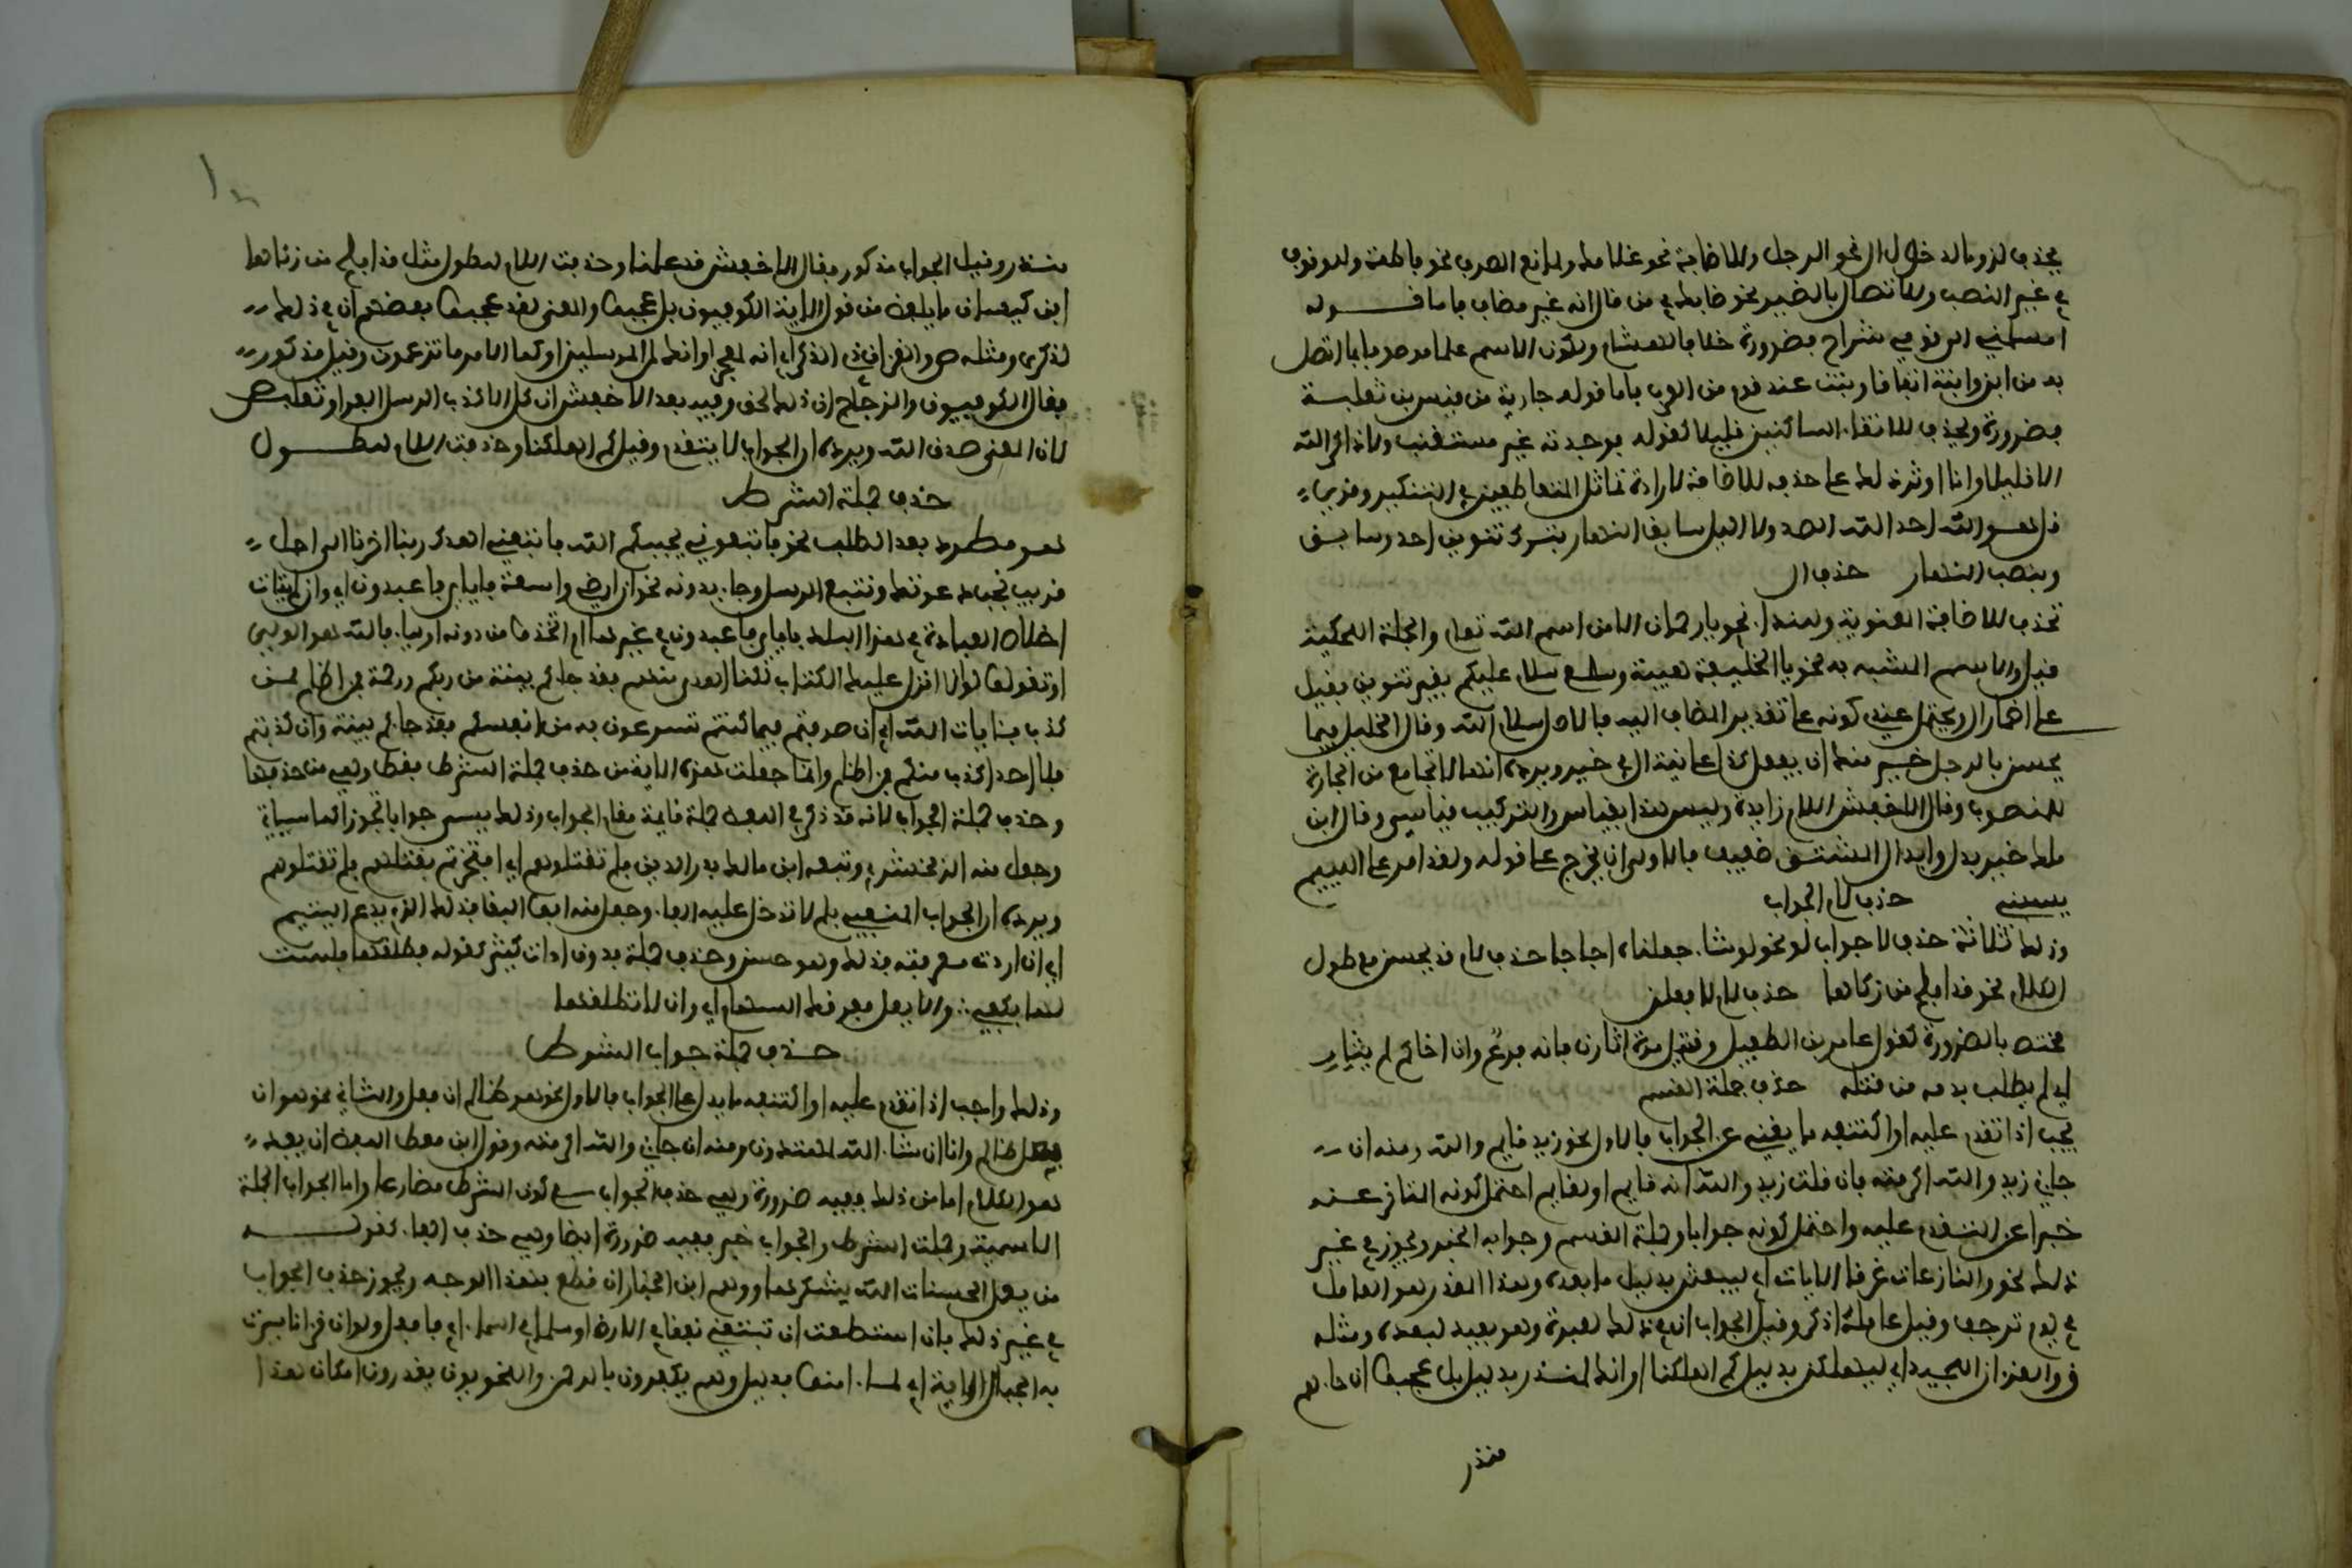 يحذف لزوما لدخول ال نحو الرجل وللاضافة نحو غلامك ولمانع الصرف نحو فاطمة وللوقوف
في غير النصب وللاتصال بالضمير نحو ضاربك في من قال انه غير مضاف فاما قوله
امسلمني الى قومي شراح فضرورة خلافا لهشام ولكون الاسم علما موصوفا بما اتصل
به من ابن وابنة اتفاقا وبنت عند قوم من العرب فاما قوله جارية من قيس بن ثعلبة
فضرورة ويحذف للالتقاء الساكنين قليلا كقوله فوجدته غير مستعتب ولا ذاكر الله
الا قليلا وانما اوثر ذلك على حذفه للاضافة لارادة تماثل المتعاطفين في التنكير وقرئ
قل هو الله احد الله الصمد ولا الليل سابق النهار بترك تنوين احد وسابق
وبنصب النهار حذف ال
تحذف للاضافة المعنوية وللنداء نحو يا رحمان الا من اسم الله تعالى والجملة المحكية
قيل والاسم المشبه به نحو يا الخليفة هيبة وسمع سلام عليكم بغير تنوين فقيل
على اضمار ال ويحتمل عندي كونه على تقدير المضاف اليه فالاصل سلام الله وقال الخليل فيما
يحسن بالرجل خير منك ان يفعل كذا على نية ال في خير ويرده انها لا تجامع من الجارة
للمفضول وقال الاخفش اللام زايدة وليس هذا بقياس والتركيب قياسي وقال ابن
ملك خير بدل وابدال المشتق ضعيف فالاولى ان يخرج على قوله ولقد امر على اللييم
يسبني حذف لام الجواب
وذلك ثلاثة حذف لام جواب لو نحو لو نشاء جعلناه اجاجا حذف لام قد يحسن مع طول
الكلام نحو قد افلح من زكاها حذف لام لافعلن
مختص بالضرورة كقول عامر بن الطفيل وقتيل مرة اثارن فانه فرغ وان اخاكم لم يثار
اي لم يطلب بدمه من قتله حذف جملة القسم
يجب اذا تقدم عليه او اكتنفه ما يغني عن الجواب فالاول نحو زيد قايم والله ومنه ان
جاني زيد والله اكرمته فان قلت زيد والله انه قايم او لقايم احتمل كونه المتاخر عنه
خبرا عن المتقدم عليه واحتمل كونه جوابا وجملة القسم وجوابه الخبر ويجوز في غير
ذلك نحو والنازعات غرقا الايات اي ليبعثن بدليل ما بعده وهذا المقدر هو العامل
في يوم ترجف وقيل عامله اذكر وقيل الجواب ان في ذلك لعبرة وهو بعيد لبعده ومثله
ق والقرءان المجيد اي ليهلكن بدليل كم اهلكنا او انك لمنذر بدليل بل عجبوا ان جاءهم
منذر
منذر وقيل الجواب مذكور فقال الاخفش قد علمنا وحذفت اللام للطول مثل قد افلح من زكاها
ابن كيسان ما يلفظ من قول الاية الكوفيون بل عجبوا والمعنى لقد عجبوا بعضهم ان في ذلك
لذكرى ومثله ص والقرءان ذي الذكر اي انه لمعجز او انك لمن المرسلين او كما الامر ما تزعمون وقيل مذكور
فقال الكوفيون والزجاج ان ذلك لحق وفيه بعد الاخفش ان كل الا كذب الرسل الفراء وثعلب ص
لان المعنى صدق الله ويرده ان الجواب لا يتقدم وقيل كم اهلكنا وحذفت اللام للطول
حذف جملة الشرط
هو مطرد بعد الطلب نحو فاتبعوني يحببكم الله فاتبعني اهدك ربنا اخرنا الى اجل
قريب نجب دعوتك ونتبع الرسل وجاء بدونه نحو ان ارضي واسعة فاياي فاعبدون اي وان لم يتات
اخلاص العبادة في هذا البلد فاياي فاعبدون في غيرها ام اتخذوا من دونه اولياء فالله هو الولي
او تقولوا لو انا انزل علينا الكتاب لكنا اهدى منهم فقد جاءكم بينة من ربكم ورحمة فمن اظلم ممن
كذب بئايات الله اي ان صدقتم فيما كنتم تسرعون به من انفسكم فقد جاءكم بينة وان كذبتم
فلا احد اكذب منكم فمن اظلم وانما جعلت هذه الاية من حذف جملة الشرط فقط وهي من حذفها
وحذف جملة الجواب لانه قد ذكر في اللفظ جملة قايمة مقام الجواب وذلك يسمى جوابا تجوزا كما سياتي
وجعل منه الزمخشري وتبعه ابن مالك بدر الدين فلم تقتلوهم اي ان افتخرتم بقتلهم فلم تقتلوهم
ويرده ان الجواب المنفي بلم لا تدخل عليه الفاء وجعل منه ابو البقا فذلك الذي يدع اليتيم
اي ان اردت معرفته فذلك وهو حسن وحذف جملة بدون اداة كثير كقوله فطلقها فلست
لها بكفي والا يعل مفرقك الحسام اي وان لا تطلقها
حذف جملة جواب الشرط
وذلك واجب اذا تقدم عليه او اكتنفه ما يدل على الجواب فالاول نحو هو ظالم ان فعل والثاني نحو هو ان
فعل ظالم وانا ان شاء الله لمهتدون ومنه ان جاني والله اكرمته وقول ابن معط اللفظ ان يفد
هو الكلام اما من ذلك ففيه ضرورة وهي حذف الجواب مع كون الشرط مضارعا واما الجواب الجملة
الاسمية وجملتا الشرط والجواب خبر ففيه ضرورة ايضا وهي حذف الفاء كقوله
من يفعل الحسنات الله يشكرها ووهم ابن الخباز ان قطع بهذا الوجه ويجوز حذف الجواب
في غير ذلك فان استطعت ان تبتغي نفقا في الارض او سلما في السماء اي فافعل ولو ان قرءانا سيرت
به الجبال الاية اي لما ءامنوا بدليل وهم يكفرون بالرحمن والنحويون يقدرون لكان هذا